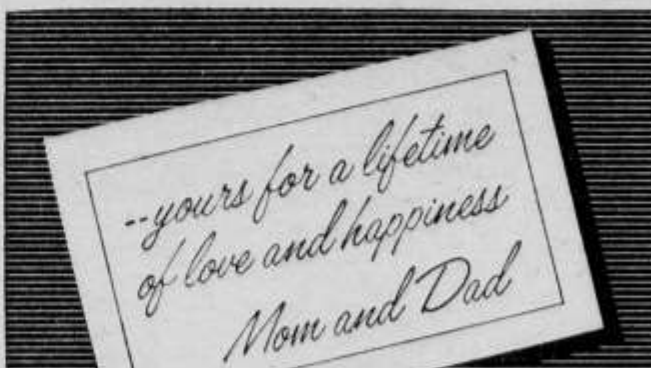 --yours for a lifetime
of love and happiness
Mom and Dad